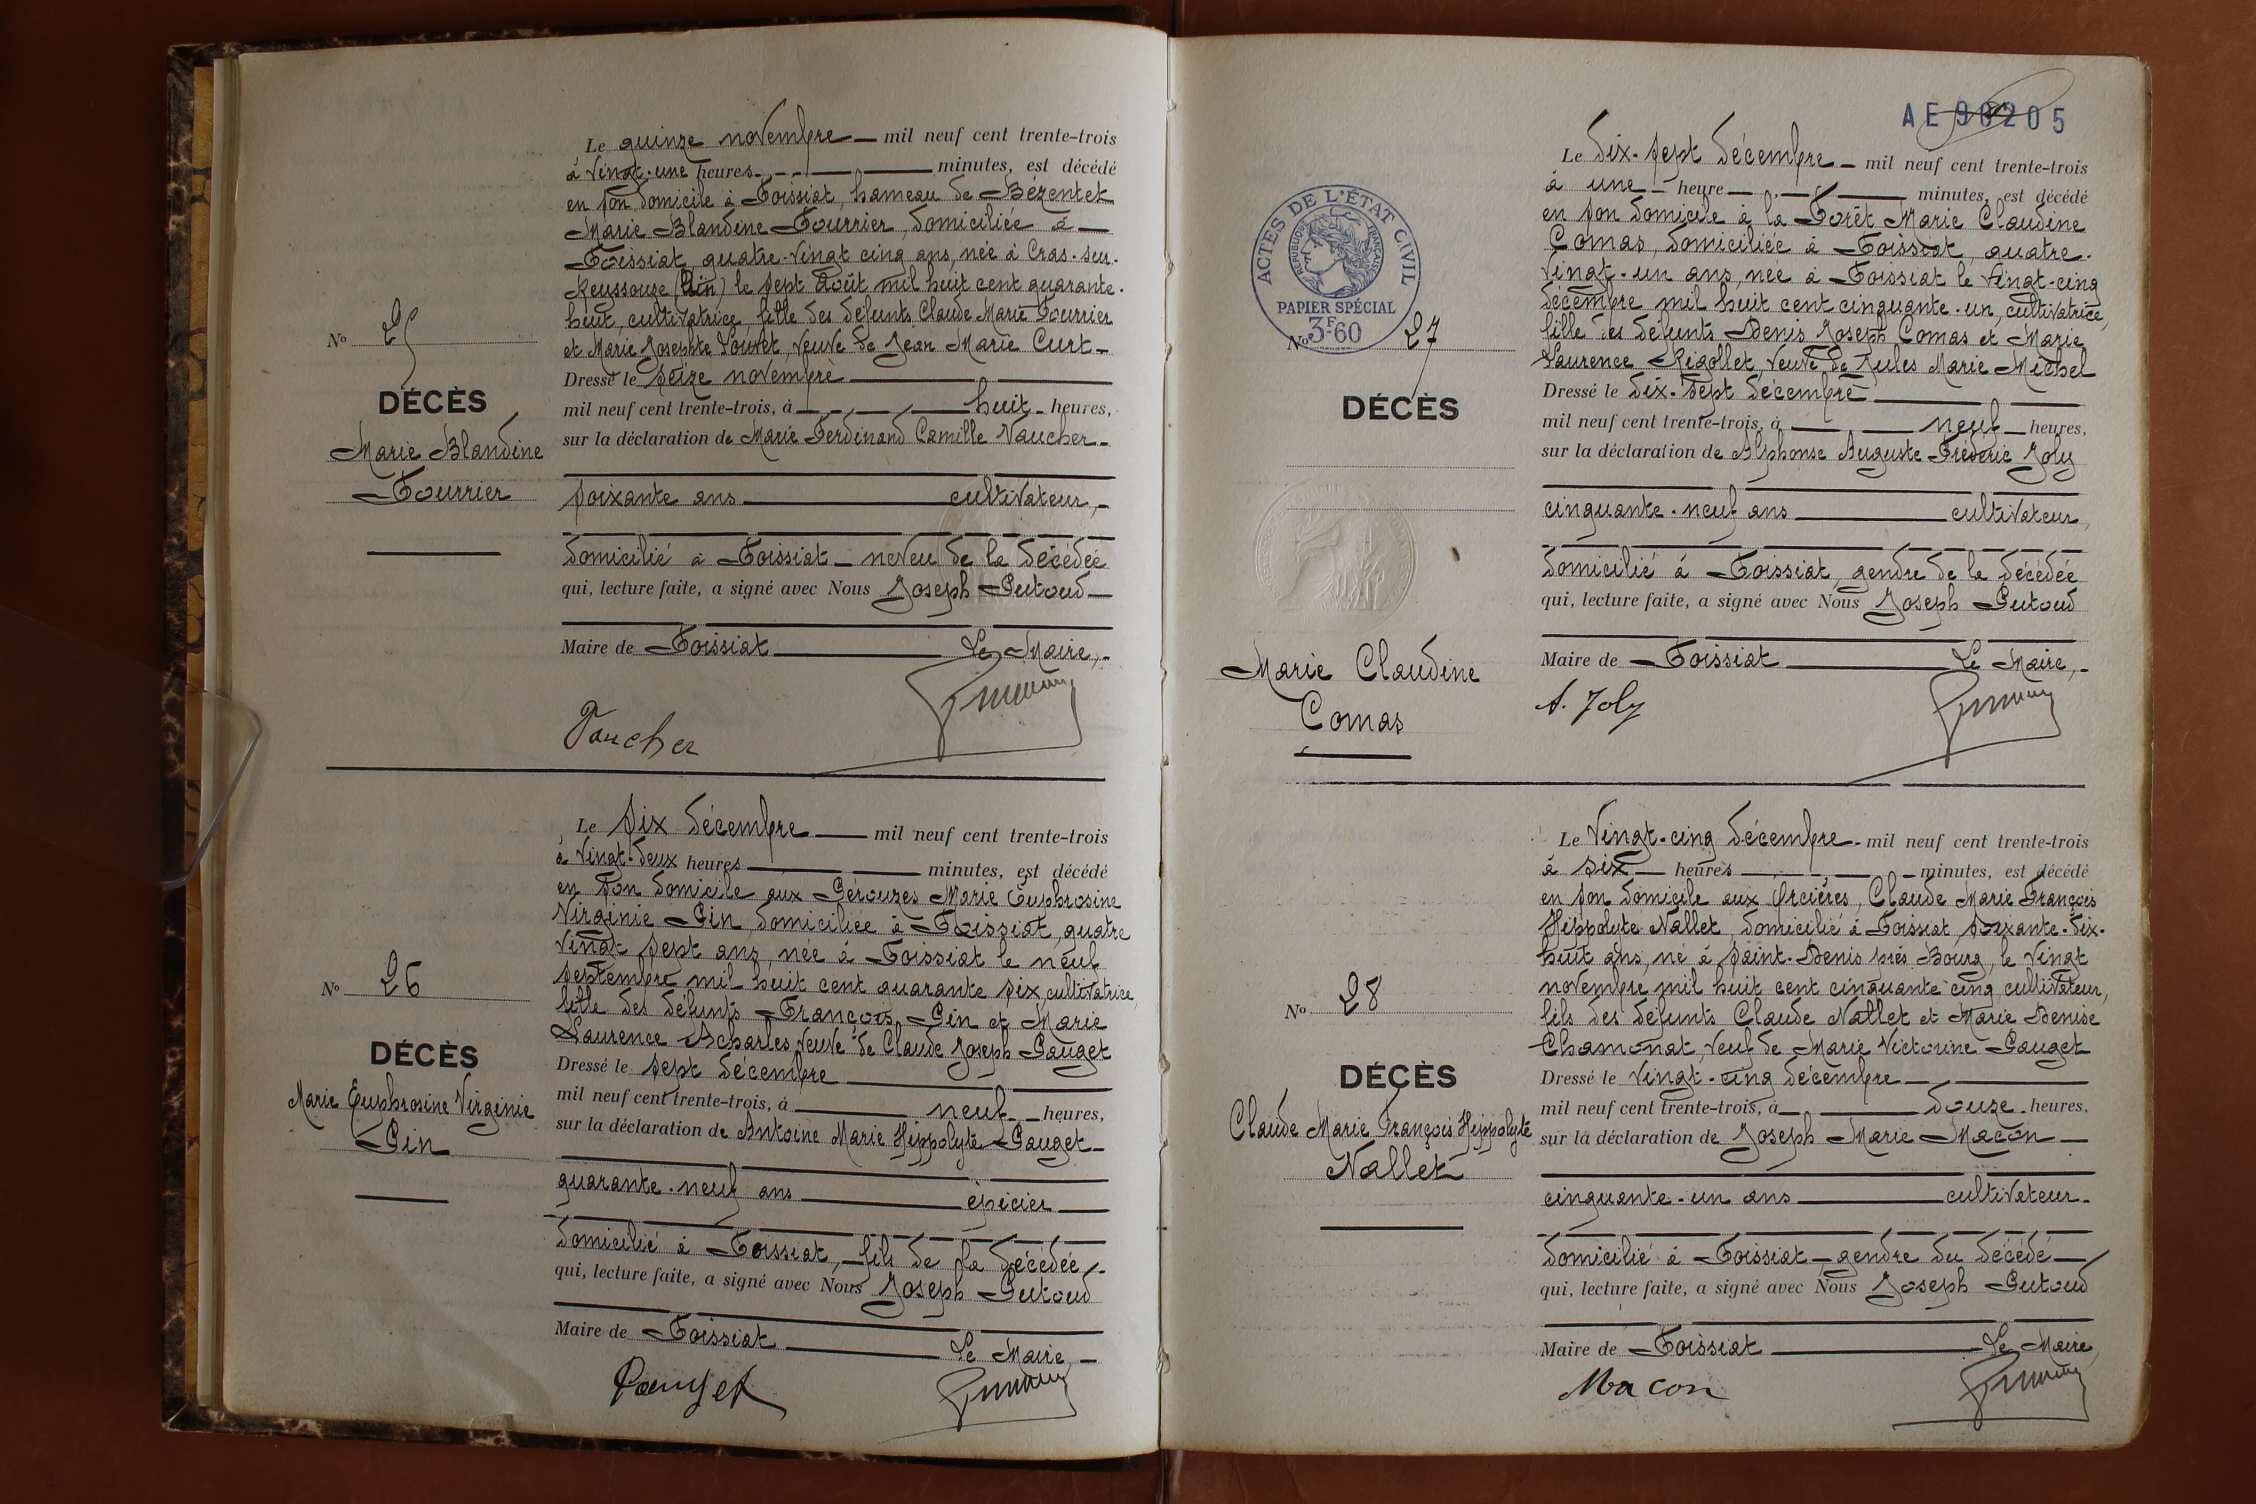 Le quinze novembre mil neuf cent trente-trois
à vingt-une heures minutes, est décédé
en son domicile à Foissiat, hameau de Bézentet
Marie Blandine Fourrier, domiciliée à
Foissiat, quatre-vingt cinq ans, née à Cras-sur-
Reyssouze (Ain) le sept août mil huit cent quarante-
huit, cultivatrice, fille des défunts Claude Marie Fourrier
et Marie Josephte Louvet, veuve de Jean Marie Curt
Dressé le seize novembre
mil neuf cent trente-trois, à huit heures,
sur la déclaration de Marie Ferdinand Camille Vaucher
soixante ans cultivateur,
domicilié à Foissiat neveu de la décédée
qui, lecture faite, a signé avec Nous Joseph Putoud
Maire de Foissiat Le Maire,
Vaucher
No 25
DÉCÈS
Marie Blandine
Fourrier
Le six décembre mil neuf cent trente-trois
à vingt-deux heures minutes, est décédé
en son domicile aux Pérouzes Marie Euphrosine
Virginie Pin, domiciliée à Foissiat, quatre
vingt sept ans, née à Foissiat le neuf
septembre mil huit cent quarante six, cultivatrice,
fille des défunts François Pin et Marie
Laurence Acharles, veuve de Claude Joseph Pauget
Dressé le sept décembre
mil neuf cent trente-trois, à neuf heures,
sur la déclaration de Antoine Marie Hippolyte Pauget
quarante-neuf ans épicier
domicilié à Foissiat, fils de la décédée,
qui, lecture faite, a signé avec Nous Joseph Putoud
Maire de Foissiat Le Maire,
Pauget
No 26
DÉCÈS
Marie Euphrosine Virginie
Pin
AE 90205
Le dix-sept décembre mil neuf cent trente-trois
à une heure minutes, est décédé
en son domicile à la Forêt Marie Claudine
Comas, domiciliée à Foissiat, quatre-
vingt-un ans, née à Foissiat le vingt-cinq
décembre mil huit cent cinquante-un, cultivatrice,
fille des défunts Denis Joseph Comas et Marie
Laurence Rigollet, veuve de Jules Marie Michel
Dressé le dix-sept décembre
mil neuf cent trente-trois, à neuf heures,
sur la déclaration de Alphonse Auguste Frédéric Joly
cinquante-neuf ans cultivateur,
domicilié à Foissiat, gendre de la décédée
qui, lecture faite, a signé avec Nous Joseph Putoud
Maire de Foissiat Le Maire,
A. Joly
ACTES DE L'ÉTAT CIVIL
RÉPUBLIQUE FRANÇAISE
PAPIER SPÉCIAL
3F60
No 27
DÉCÈS
Marie Claudine
Comas
Le vingt-cinq décembre mil neuf cent trente-trois
à six heures minutes, est décédé
en son domicile aux Orcières, Claude Marie François
Hippolyte Nallet, domicilié à Foissiat, soixante-dix-
huit ans, né à Saint-Denis près Bourg, le vingt
novembre mil huit cent cinquante cinq, cultivateur,
fils des défunts Claude Nallet et Marie Denise
Chamonat, veuf de Marie Victorine Pauget
Dressé le vingt-cinq décembre
mil neuf cent trente-trois, à douze heures,
sur la déclaration de Joseph Marie Macon
cinquante-un ans cultivateur
domicilié à Foissiat gendre du décédé
qui, lecture faite, a signé avec Nous Joseph Putoud
Maire de Foissiat Le Maire,
Macon
No 28
DÉCÈS
Claude Marie François Hippolyte
Nallet